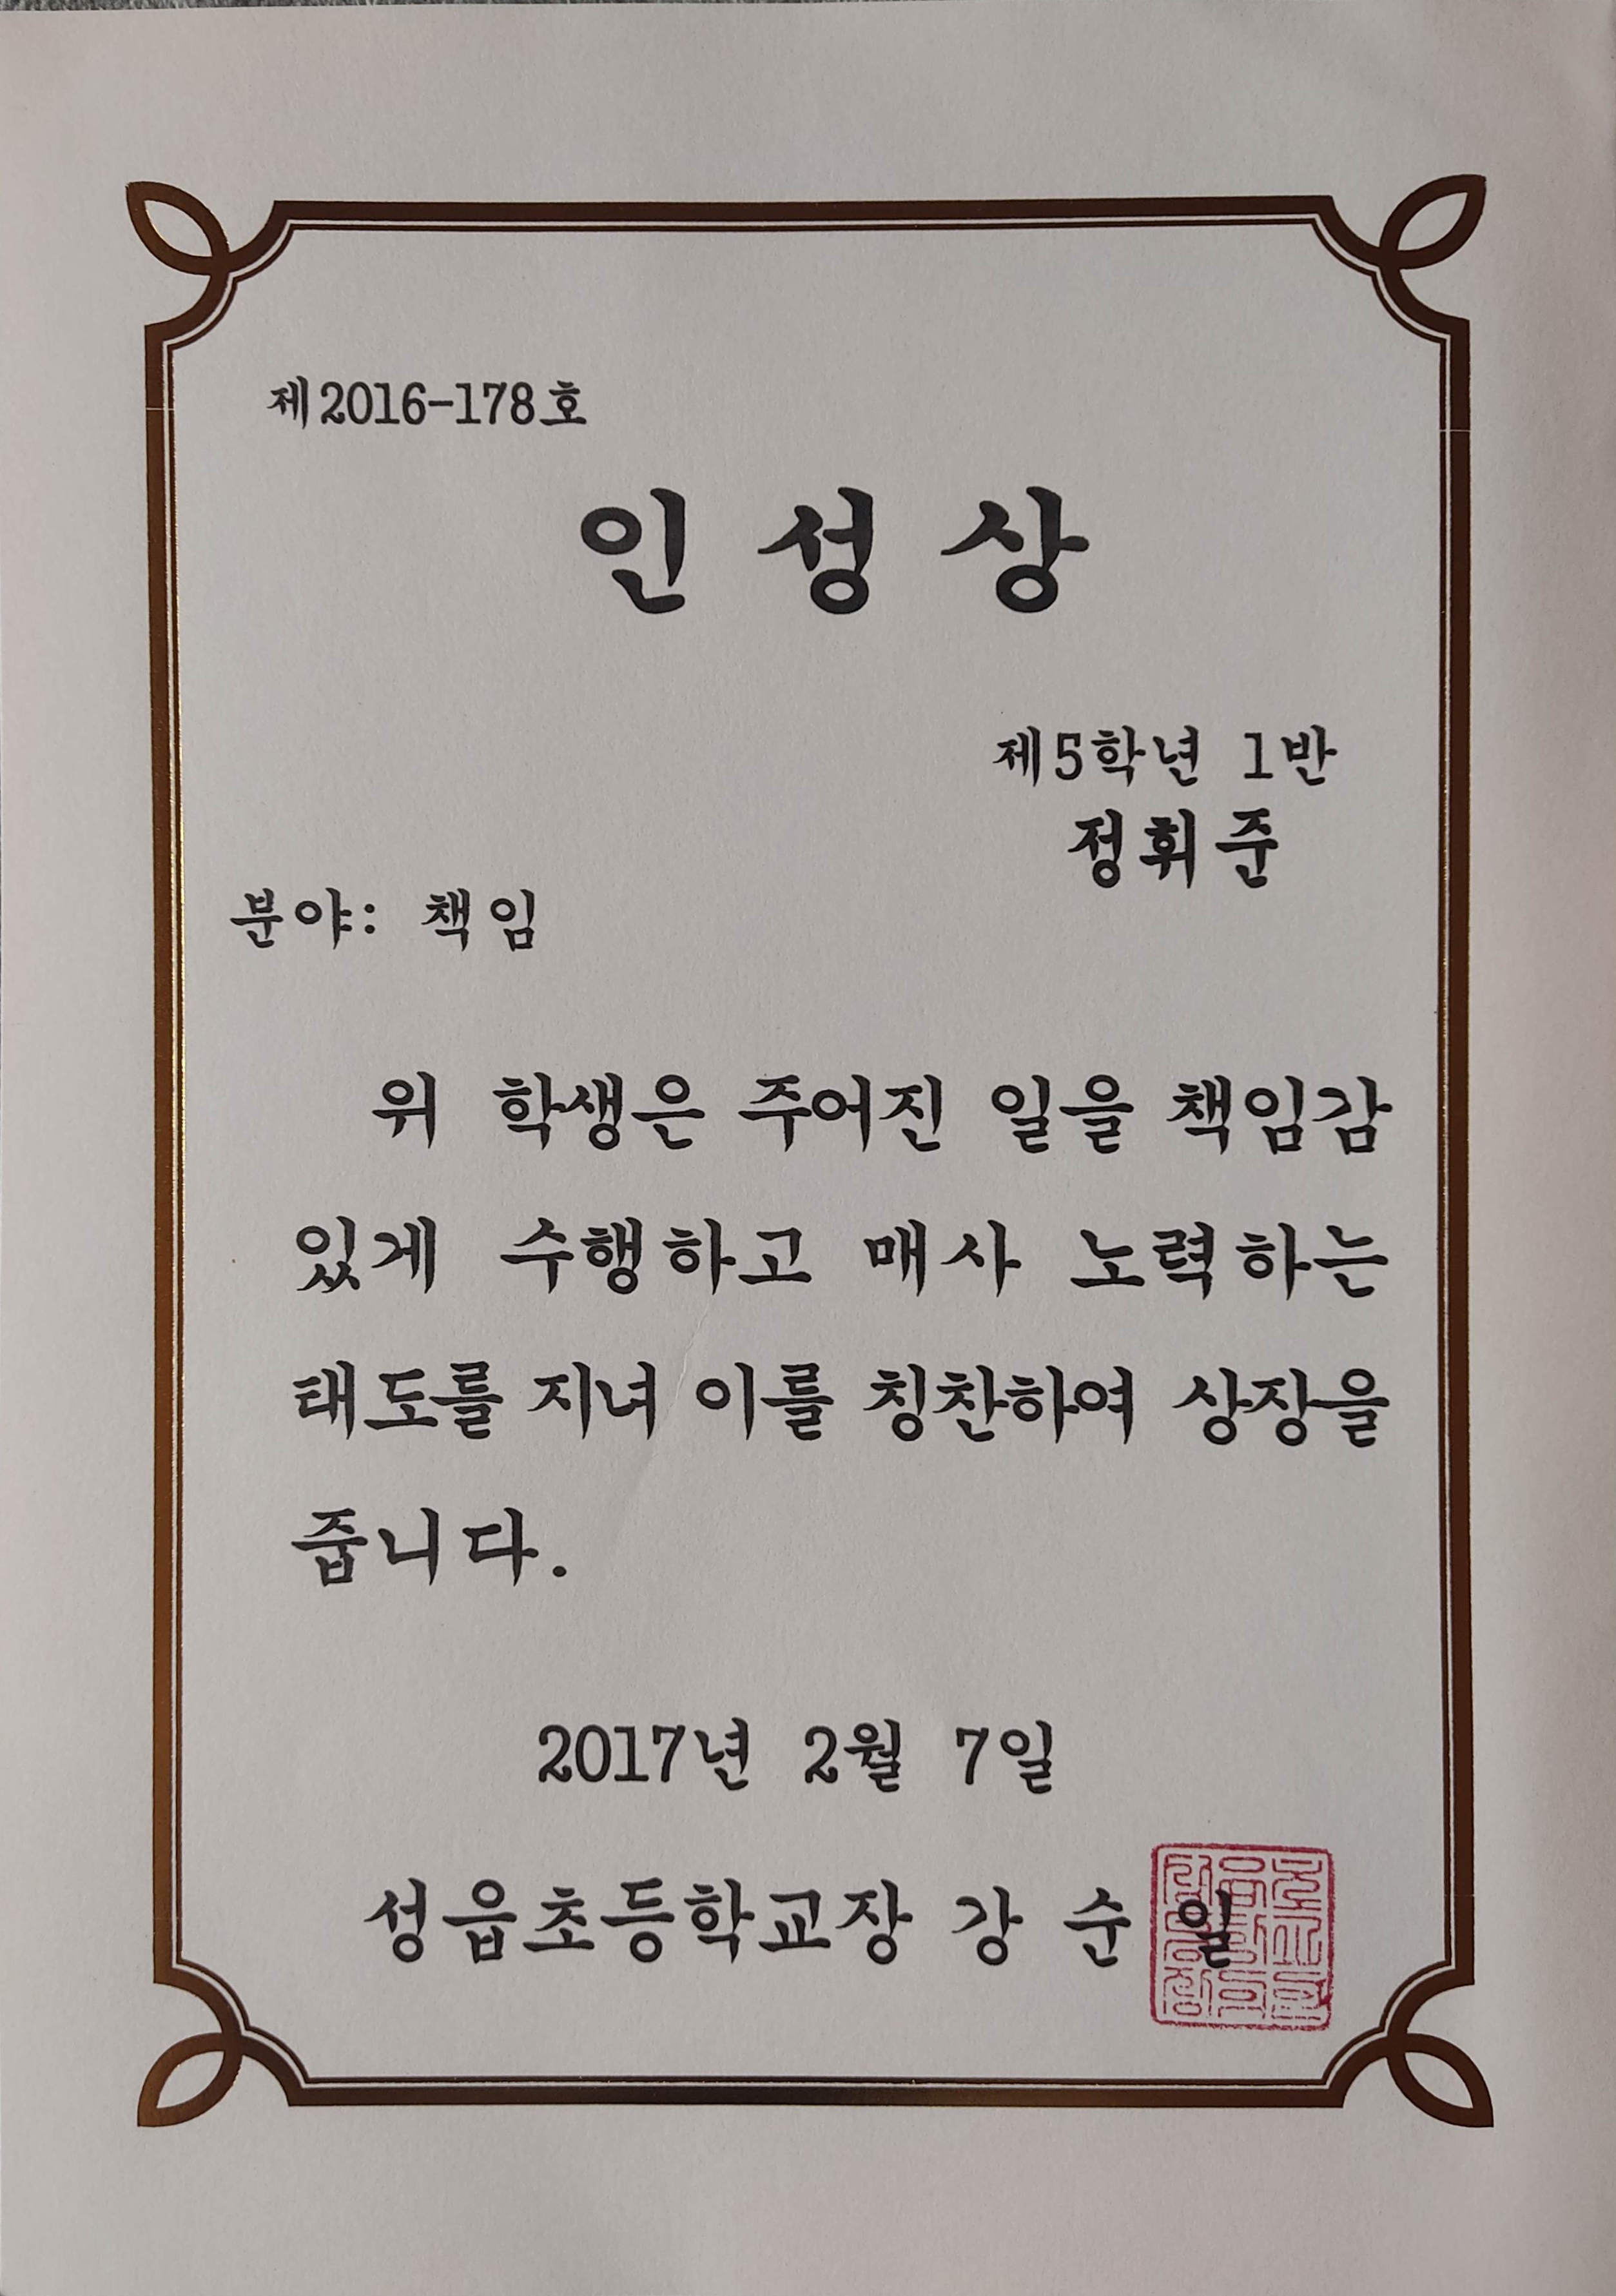 제2016-178호
인 성 상
제5학년 1반
정휘준
분야: 책임
위 학생은 주어진 일을 책임감
있게 수행하고 매사 노력하는
태도를 지녀 이를 칭찬하여 상장을
줍니다.
2017년 2월 7일
성읍초등학교장 강 순 일